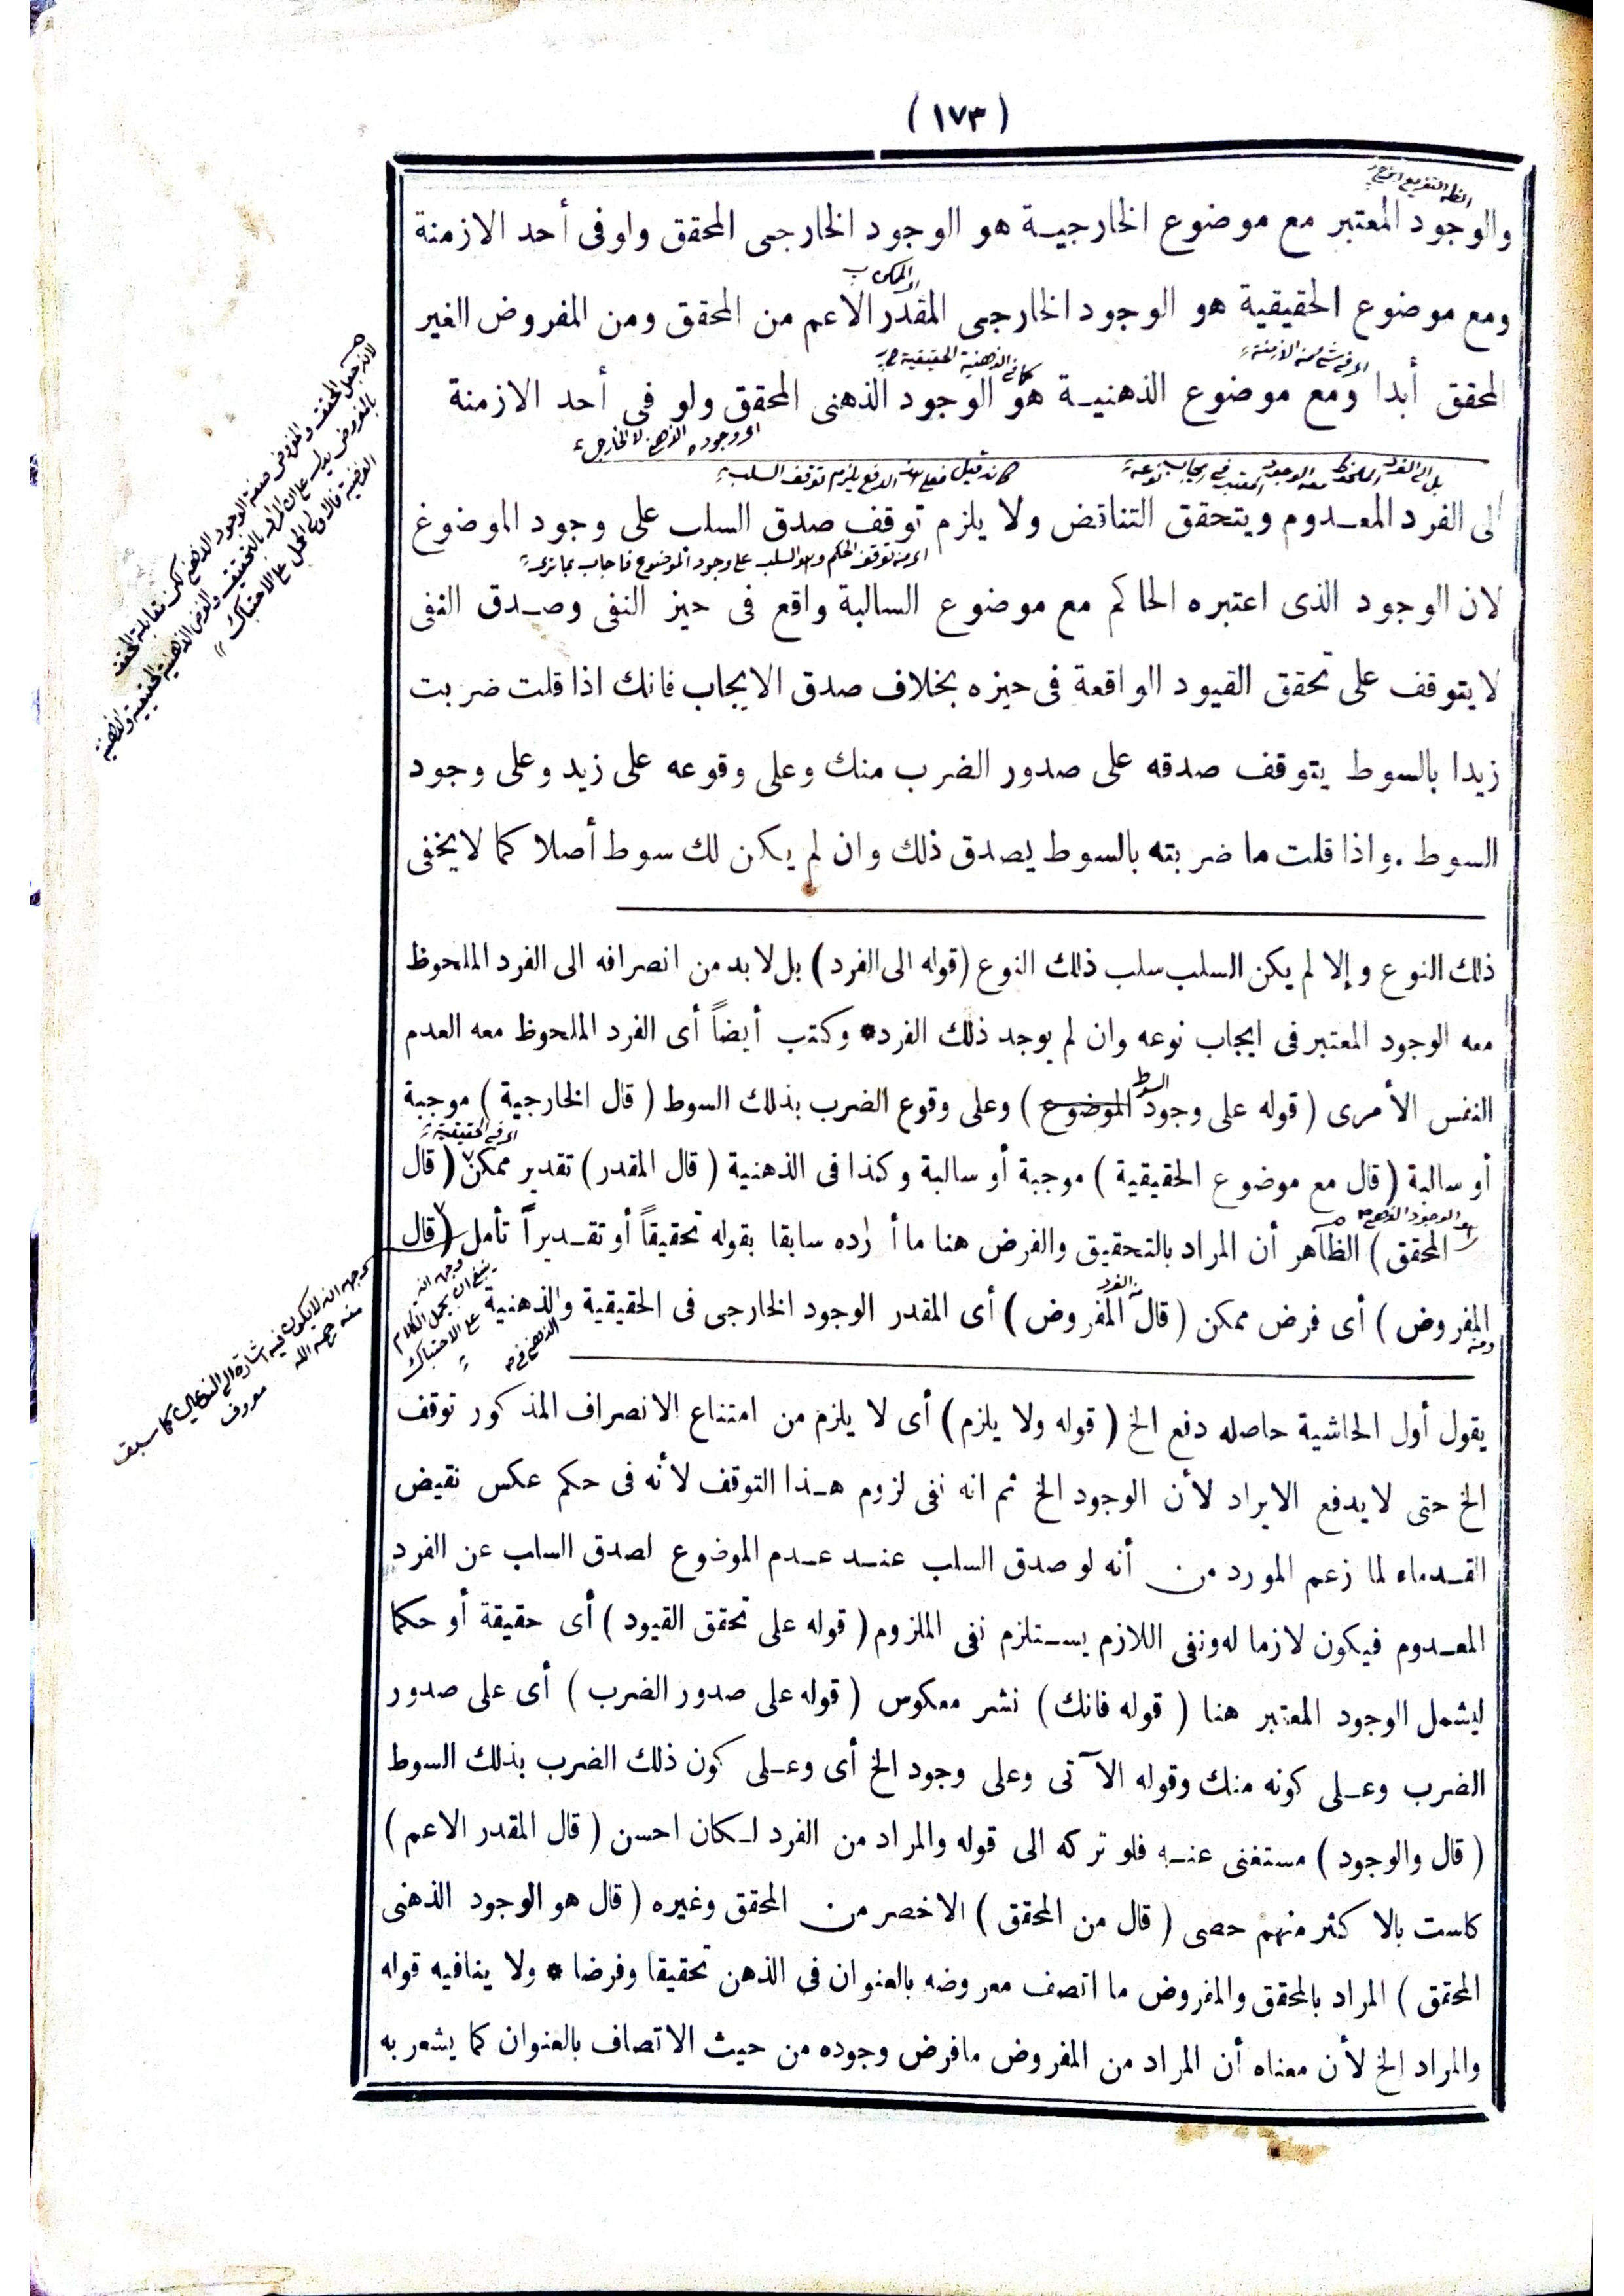 (١٧٣)
والوجود المعتبر مع موضوع الخارجيـة هو الوجود الخارجى المحقق ولو فى أحد الازمنة
ومع موضوع الحقيقية هو الوجود الخارجى المقدر الاعم من المحقق ومن المفروض الغير
كما فى الذهنية الحقيقية
المحقق أبدا ومع موضوع الذهنيـة هو الوجود الذهنى المحقق ولو فى أحد الازمنة
اى وجوده الذهنى لا الخارجى
بل الى الفرد الملحوظ معه الوجود المعتبر فى ايجاب نوعه
كانه قيل فعلى هذا الدفع يلزم توقف السلب
الى الفرد المعـدوم ويتحقق التناقض ولا يلزم توقف صدق السلب على وجود الموضوع
اى منه توقف الحكم وهو السلب على وجود الموضوع فاجاب بما ترى
لان الوجود الذى اعتبره الحاكم مع موضوع السالبة واقع فى حيز النفى وصـدق النفى
لا يتوقف على تحقق القيود الواقعة فى حيزه بخلاف صدق الايجاب فانك اذا قلت ضربت
زيدا بالسوط يتوقف صدقه على صدور الضرب منك وعلى وقوعه على زيد وعلى وجود
السوط . واذا قلت ما ضربته بالسوط يصدق ذلك وان لم يكن لك سوط أصلا كما لا يخفى
ذلك النوع وإلا لم يكن السلب سلب ذلك النوع (قوله الى الفرد) بل لا بد من انصرافه الى الفرد الملحوظ
معه الوجود المعتبر فى ايجاب نوعه وان لم يوجد ذلك الفرد* وكتب أيضاً أى الفرد الملحوظ معه العدم
السوط
النفس الأمرى ( قوله على وجود الموضوع ) وعلى وقوع الضرب بذلك السوط ( قال الخارجية ) موجبة
اى فى الحقيقية
أو سالبة ( قال مع موضوع الحقيقية ) موجبة أو سالبة وكذا فى الذهنية ( قال المقدر ) تقدير ممكن ( قال
هو الوجود الذهنى
المحقق ) الظاهر أن المراد بالتحقيق والفرض هنا ما أراده سابقا بقوله تحقيقاً أو تقـديراً تأمل ( قال
المفروض ) أى فرض ممكن ( قال المفروض ) أى المقدر الوجود الخارجى فى الحقيقية والذهنية
وجهه انه
ينبغى ان يحمل الكلام
على الاحتباك
يقول أول الحاشية حاصله دفع الخ ( قوله ولا يلزم ) أى لا يلزم من امتناع الانصراف المذكور توقف
الخ حتى لا يدفع الايراد لأن الوجود الخ ثم انه نفى لزوم هـذا التوقف لأنه فى حكم عكس نقيض
القـدماء لما زعم المورد من أنه لو صدق السلب عنـد عـدم الموضوع لصدق السلب عن الفرد
المعـدوم فيكون لازما له ونفى اللازم يسـتلزم نفى الملزوم ( قوله على تحقق القيود ) أى حقيقة أو حكما
ليشمل الوجود المعتبر هنا ( قوله فانك ) نشر معكوس ( قوله على صدور الضرب ) أى على صدور
الضرب وعـلى كونه منك وقوله الآتى وعلى وجود الخ أى وعـلى كون ذلك الضرب بذلك السوط
( قال والوجود ) مستغنى عنـه فلو تركه الى قوله والمراد من الفرد لـكان احسن ( قال المقدر الاعم )
كاست بالاكثر منهم حصى ( قال من المحقق ) الاخصر من المحقق وغيره ( قال هو الوجود الذهنى
المحقق ) المراد بالمحقق والمفروض ما اتصف معروضه بالعنوان فى الذهن تحقيقا وفرضا * ولا ينافيه قوله
والمراد الخ لأن معناه أن المراد من المفروض ما فرض وجوده من حيث الاتصاف بالعنوان كما يشعر به